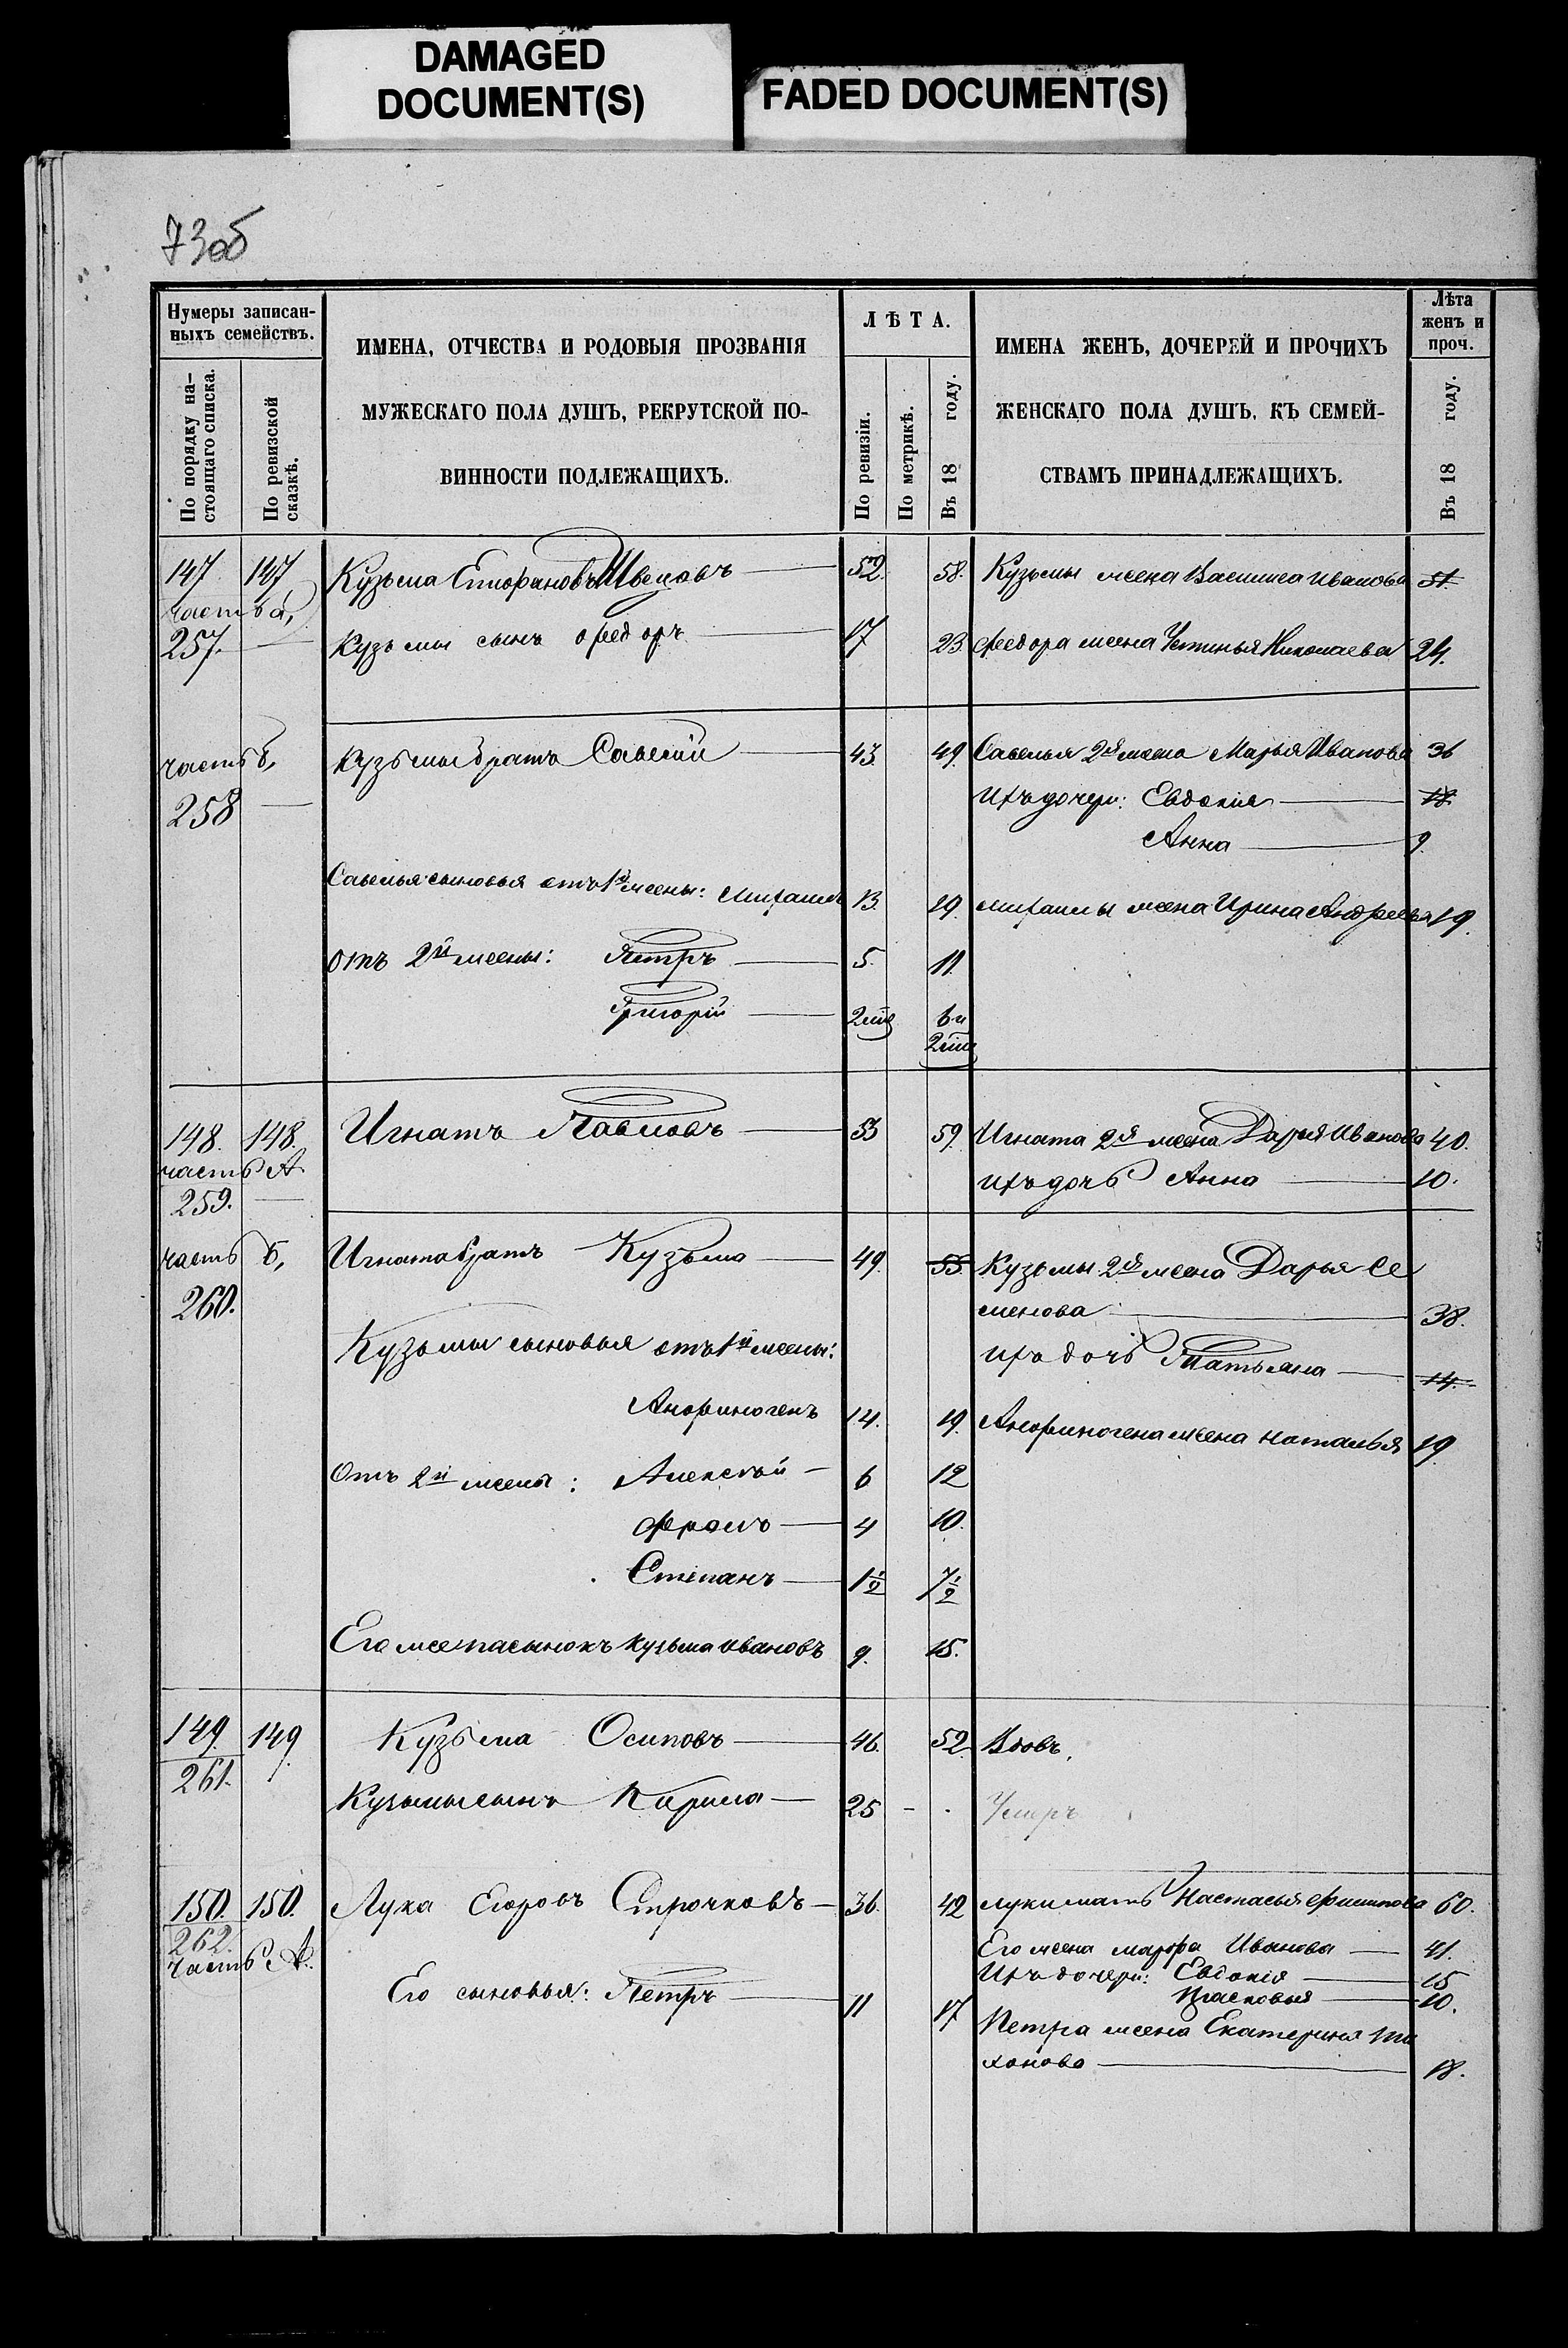 DAMAGED
DOCUMENT(S)
FADED DOCUMENT(S)
73об
Нумеры записан-
ныхъ семействъ.
По порядку на-
стоящаго списка.
По ревизской
сказкѣ.
ИМЕНА, ОТЧЕСТВА И РОДОВЫЯ ПРОЗВАНІЯ
МУЖЕСКАГО ПОЛА ДУШЪ, РЕКРУТСКОЙ ПО-
ВИННОСТИ ПОДЛЕЖАЩИХЪ.
ЛѢТА.
По ревизіи.
По метрикѣ.
Въ 18 году.
ИМЕНА ЖЕНЪ, ДОЧЕРЕЙ И ПРОЧИХЪ
ЖЕНСКАГО ПОЛА ДУШЪ, КЪ СЕМЕЙ-
СТВАМЪ ПРИНАДЛЕЖАЩИХЪ.
Лѣта
женъ и
проч.
Въ 18 году.
147 147 Кузьма Епифановъ Швецовъ 52. 58. Кузьмы жена Василиса Иванова 51.
часть а,
257. Кузьмы сынъ Федоръ 17 23. Федора жена Устинья Николаева 24.
часть б, Кузьмы братъ Савелій 43 49. Савелья 2я жена Марья Иванова 36
258 Ихъ дочери: Евдокия 18.
Анна 9.
Савелья сыновья отъ 1й жены: Михаилъ 13. 19. Михаилы жена Ирина Андреева 19.
отъ 2й жены: Петръ 5. 11.
Григорій 2 6 и
2
148. 148. Игнатъ Павловъ 53 59. Игната 2я жена Дарья Иванова 40.
часть А
259. Ихъ дочь Анна 10.
часть б, Игната братъ Кузьма 49. 55. Кузьмы 2я жена Дарья Се
260. менова 38.
Кузьмы сыновья отъ 1й жены: Ихъ дочь Татьяна 14.
Анфиногенъ 14. 19. Анфиногена жена Наталья 19
Отъ 2й жены: Алексѣй 6 12
Фролъ 4 10.
Степанъ 1½ 7½
Его же пасынокъ Кузьма Ивановъ 9. 15.
149. 149 Кузьма Осиповъ 46. 52 Вдовъ.
261.
Кузьмы сынъ Кирила 25 - . Умеръ
150. 150. Лука Егоровъ Строчковъ 36. 42 Луки мать Настасья Филипова 60.
262.
часть А. Его жена Марфа Иванова 41.
Ихъ дочери: Евдокія 15
Его сыновья: Петръ 11 17 Прасковья 10.
Петра жена Екатерина Ти
хонова 18.